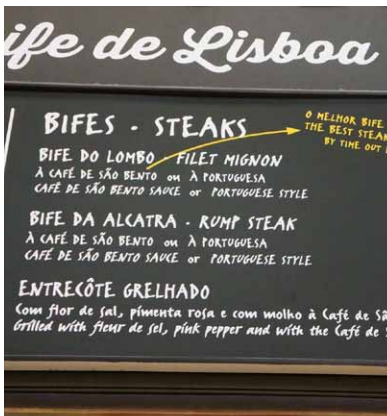 ife de Lisboa
BIFES - STEAKS
O MELHOR BIFE
THE BEST STEAK
BY TIME OUT
BIFE DO LOMBO - FILET MIGNON
À CAFÉ DE SÃO BENTO ou À PORTUGUESA
CAFÉ DE SÃO BENTO SAUCE or PORTUGUESE STYLE
BIFE DA ALCATRA - RUMP STEAK
À CAFÉ DE SÃO BENTO ou À PORTUGUESA
CAFÉ DE SÃO BENTO SAUCE or PORTUGUESE STYLE
ENTRECÔTE GRELHADO
Com flor de sal, pimenta rosa e com molho à Café de Sã
Grilled with fleur de sel, pink pepper and with the Café de S